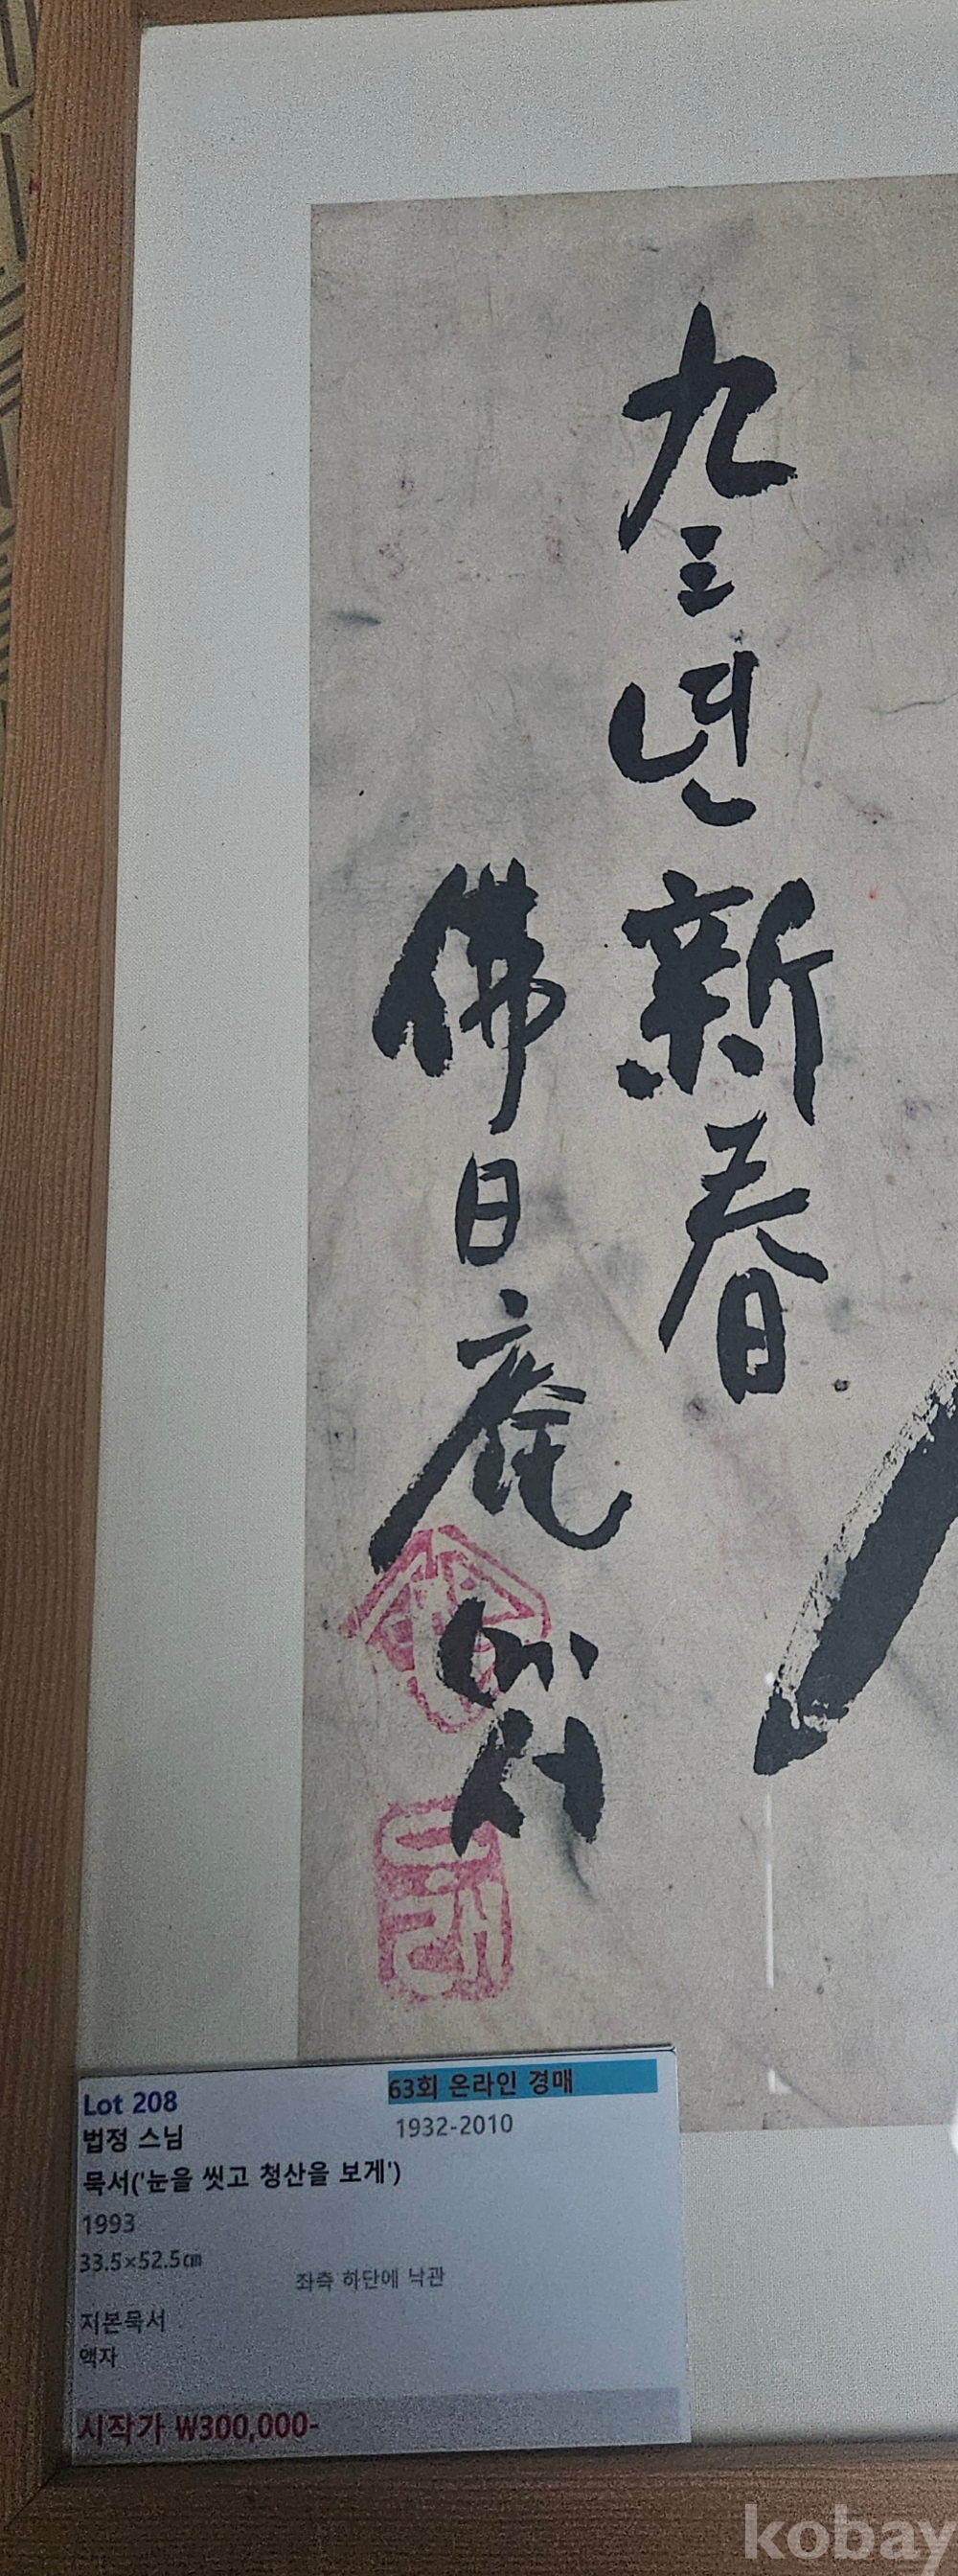 九三년 新春
佛日庵에서
Lot 208
63회 온라인 경매
법정 스님
1932-2010
묵서('눈을 씻고 청산을 보게')
1993
33.5×52.5㎝
좌측 하단에 낙관
지본묵서
액자
시작가 ₩300,000-
kobay